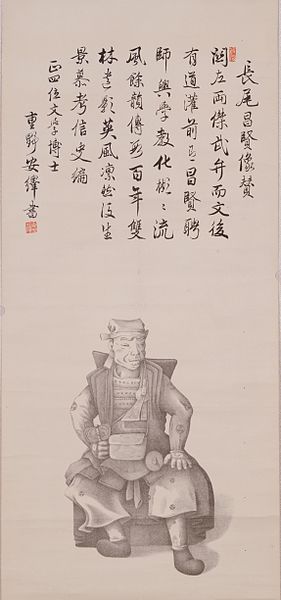 長尾昌賢像賛
関左両傑武弁而文後
有道灌前有昌賢聘
師興學教化彬〻流
風餘韻傳百年雙
林遺影英風凛然後生
景慕考信史編
正四位文学博士
重野安繹書